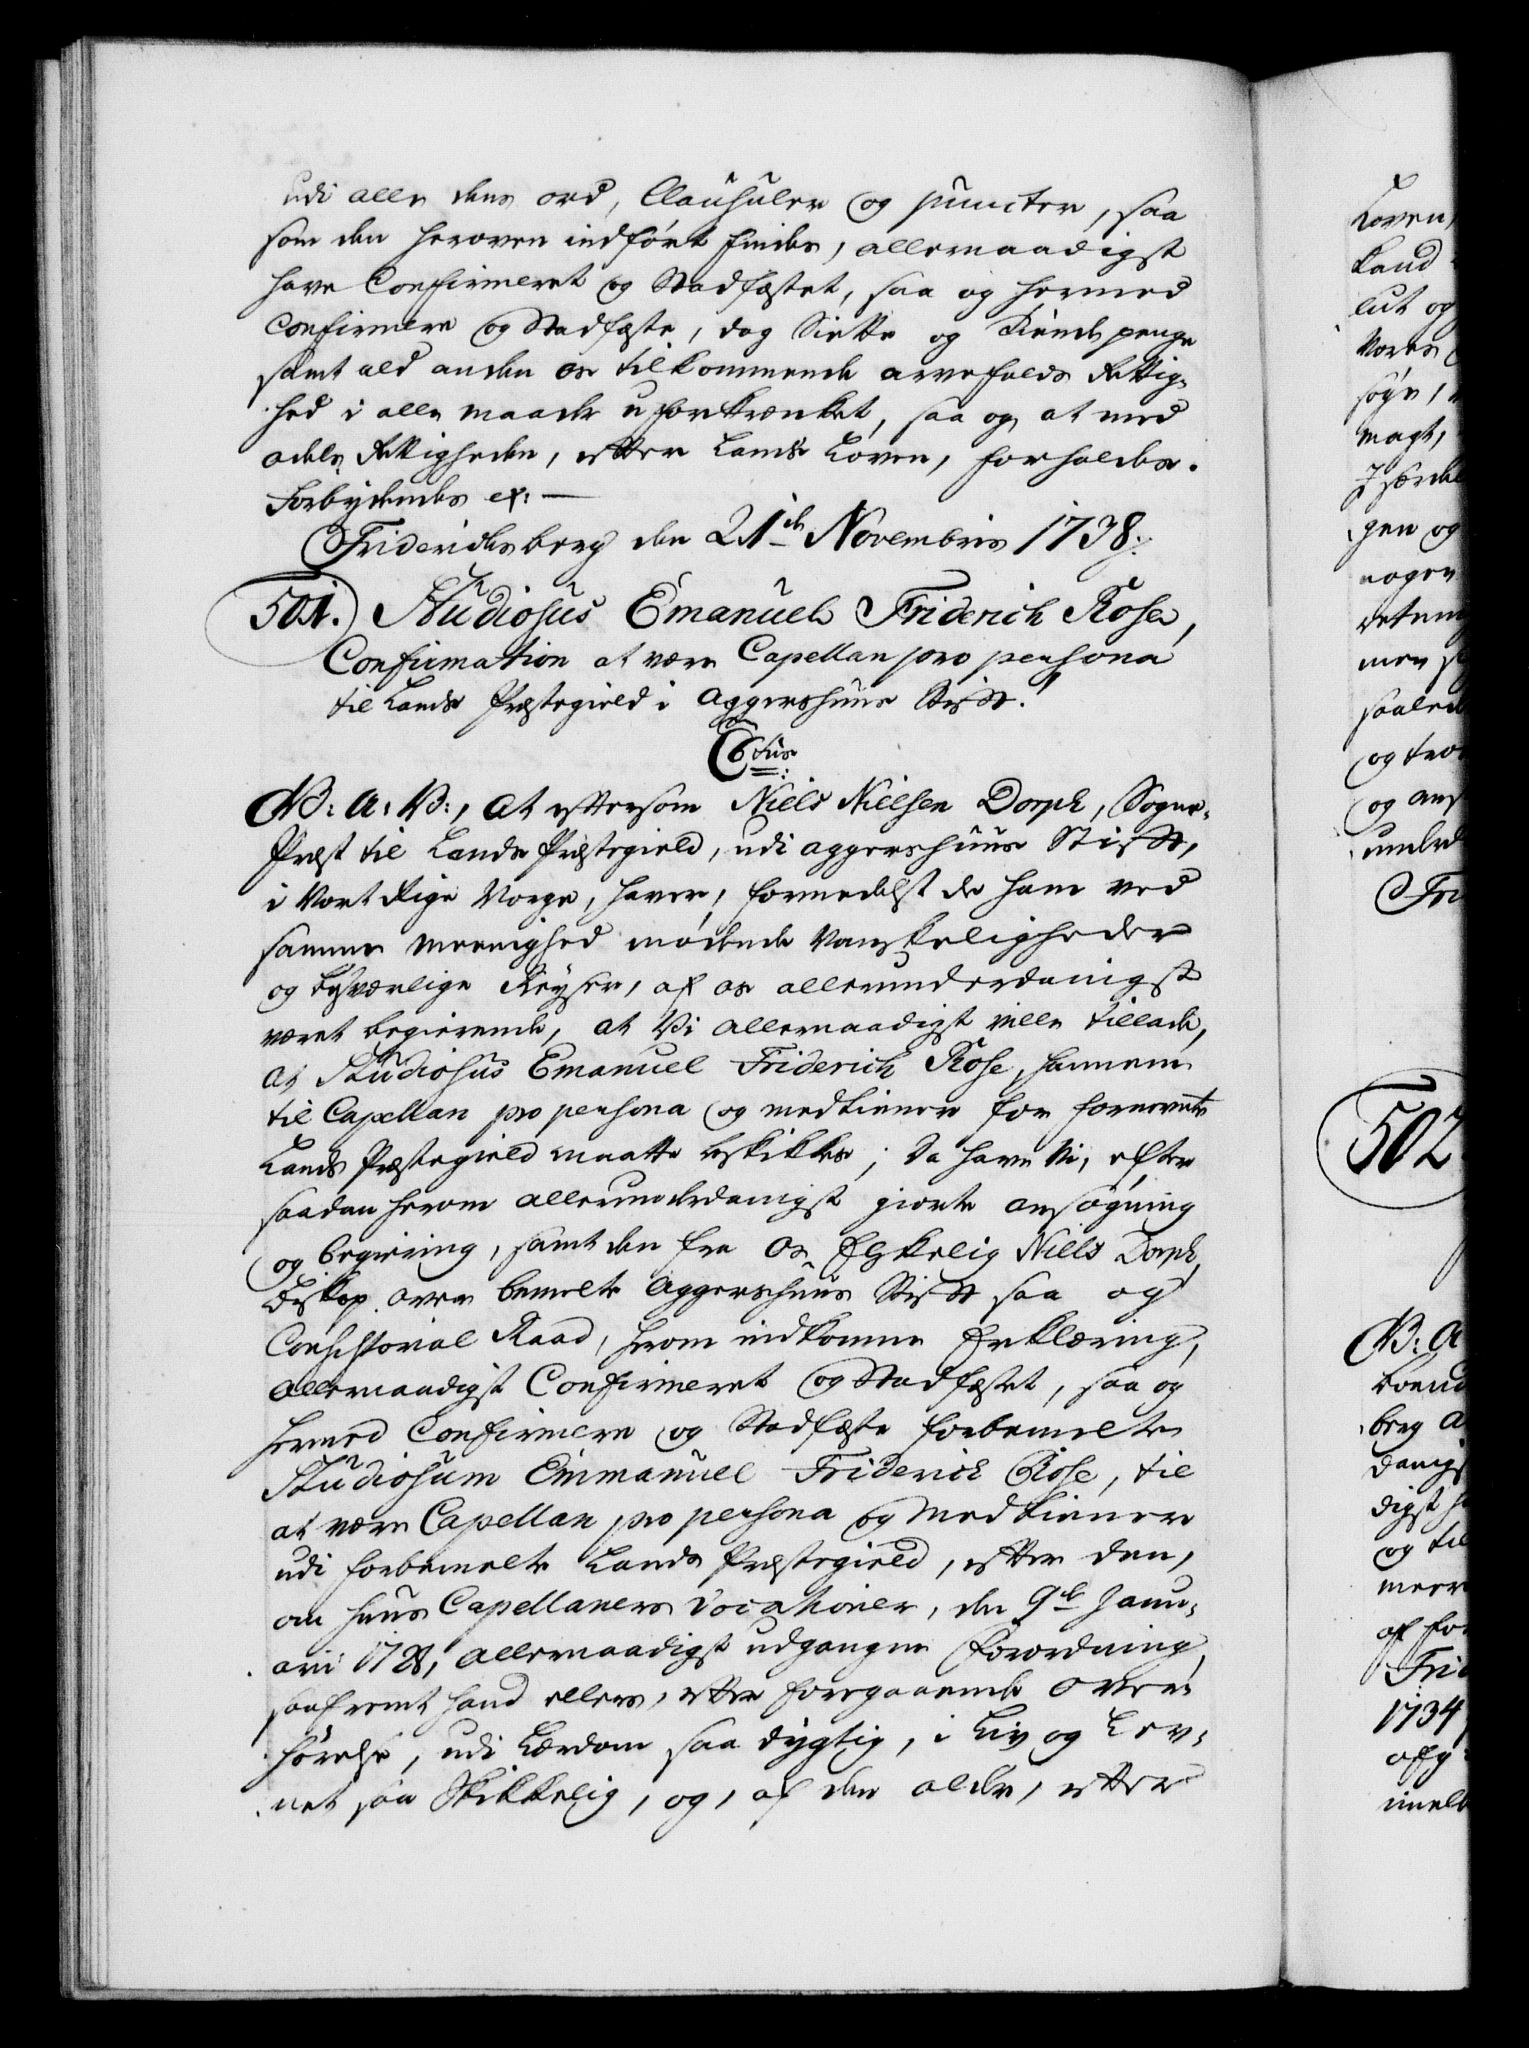 udi alle dens ord, Clausuler og puncter, saa
som den heroven indført findes, allernaadigst
have Confirmeret og Stadfæstet, saa og hermed
Confirmere og Stadfæste, dog Siette og Tiende penge
samt ald anden os tilkommende arvefalds Rettig-
hed i alle maade uforkrænket, saa og at med
odels Rettigheden, efter Lands Loven, forholdes.
Forbydendes etc:
Friderichsberg den 21de Novembris 1738.
501. Studiosus Emanuel Friderich Rose,
Confirmation at være Capellan pro persona
til Lands Præstegield i Aggershuus Stift.
C6tus
V: A: V:, at eftersom Niels Nielsen Dorph, Sogne-
Præst til Lands Præstegield, udi Aggershuus Stift,
i Vort Rige Norge, haver, formedelst de ham ved
samme Meenighed mødende Vanskeligheder
og besværlige Reyser, af os allerunderdanigst
været begierende, at Vi allernaadigst ville tillade,
at Studiosus Emanuel Friderich Rose, hannem
til Capellan pro persona og medtiener for fornevnte
Lands Præstegield maatte beskikkes; Da have Vi, efter
saadan herom allerunderdanigst giorte ansøgning
og begiering, samt den fra Os Elskelig Niels Dorph,
Biskop over bemelte Aggershuus Stift saa og
Consistorial Raad, herom indkomne Erklæring,
allernaadigst Confirmeret og Stadfæstet, saa og
hermed Confirmere og Stadfæste forbemelte
Studiosum Emmanuel Friderich Rose, til
at være Capellan pro persona og Medtienere
udi forbemelte Lands Præstegield, efter den,
om huus Capellaners Vocationer, den 9de Janu-
arii 1728, allernaadigst udgangne Forordning,
saafremt hand ellers, efter foregaaende Over-
hørelse, udi Lærdom saa dygtig, i Liv og Lev-
net saa Skikkelig, og, af den alder, efter
Loven,
Land
lut og
Vores
søge,
magt,
gen og
nogen
men
saaled
og
og
Fri
502
V: A
berg A
dang
digst
og til
meer
af for
Frid
1734